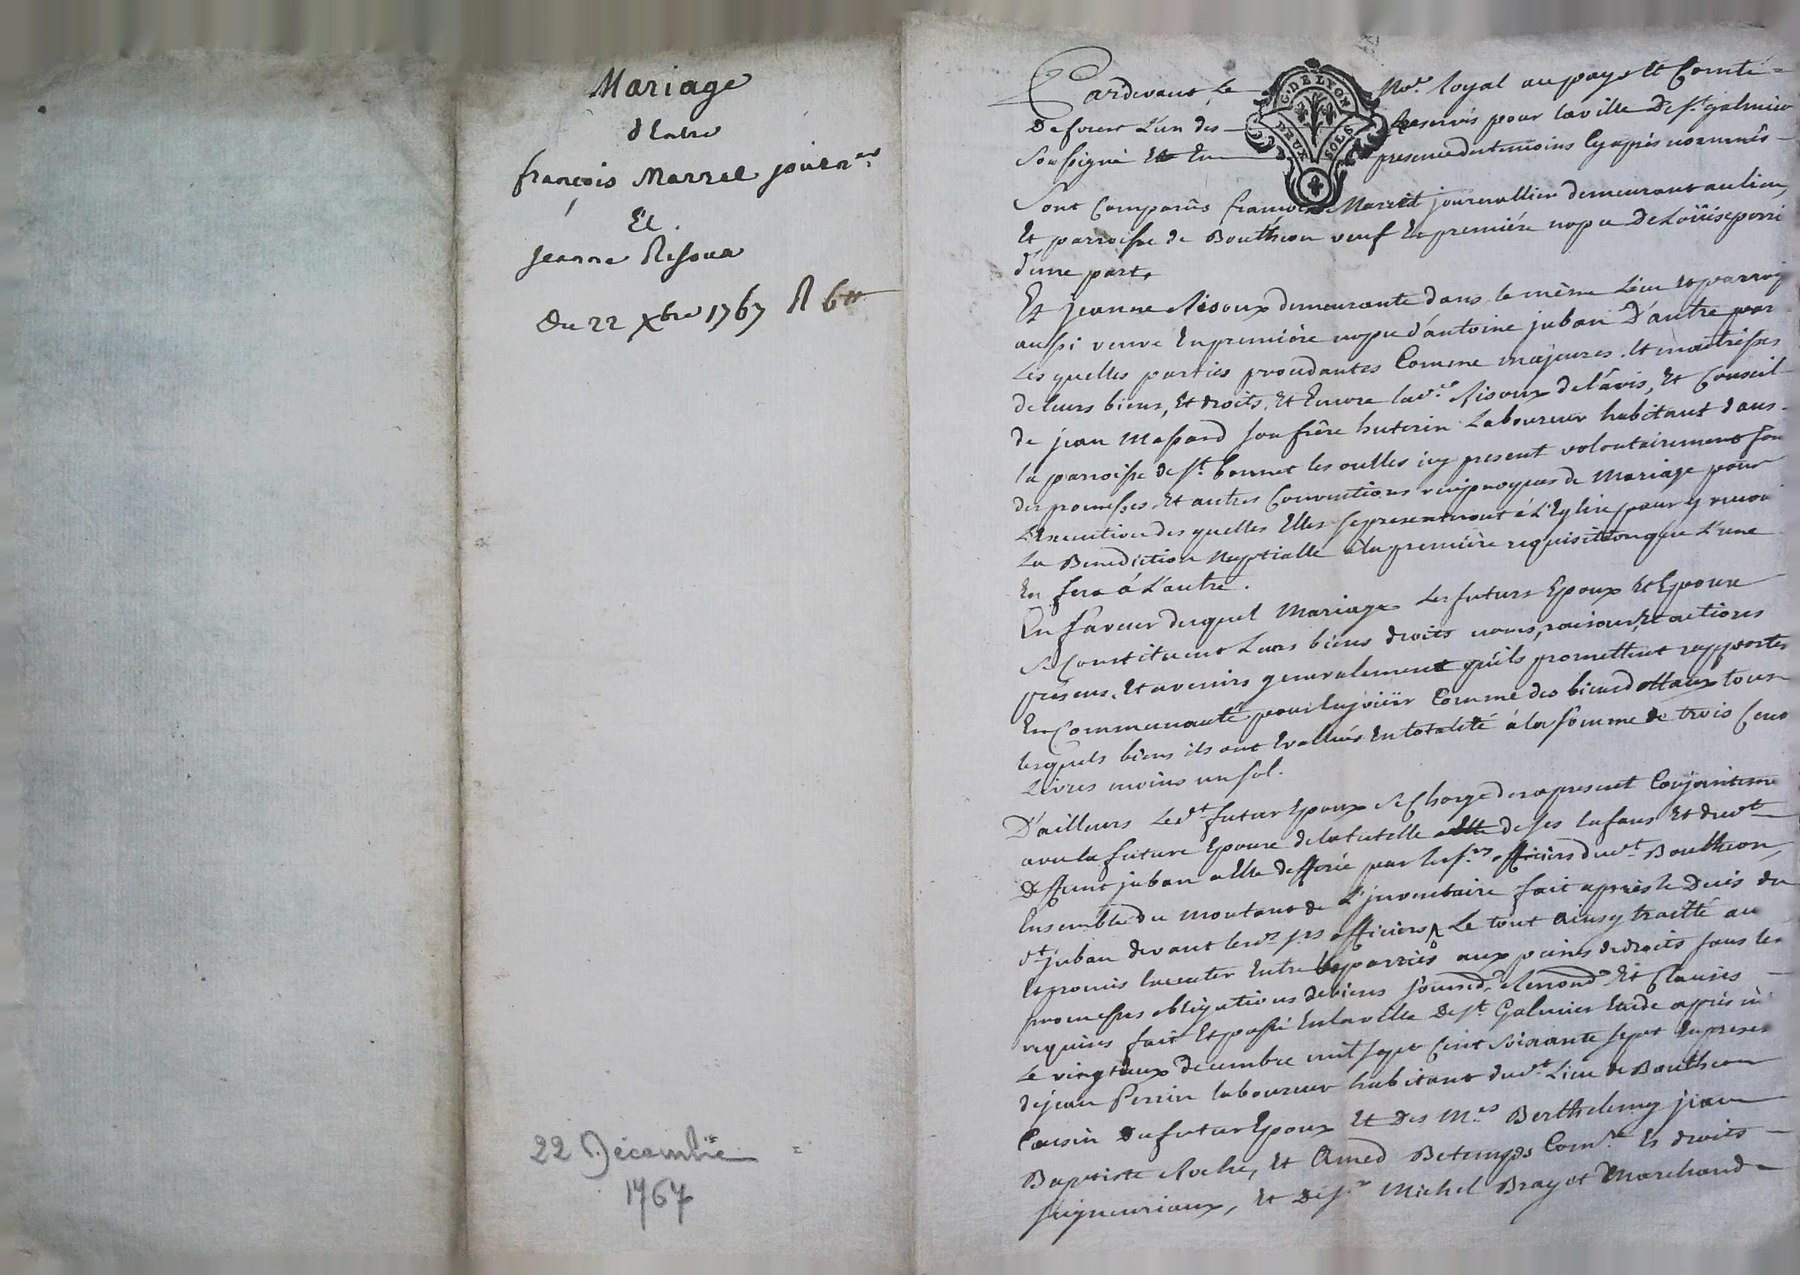 Mariage
d'Entre
françois Marrel journer
Et
jeanne Risoux
du 22 Xbre 1767 R 6tt
22 Décembre
1767
G. DE LYON
DEUX SOLS
Pardevant Le Nre. Royal au pays Et Comté
De forest L'un des Reservés pour la ville De St. galmier
Soussigné Et En presence des temoins Cy après nommés
Sont Comparûs françois Marrel journallier demeurant au lieu
Et parroisse de Bouthéon veuf En premiére nopce De Loüise perri
d'une part,
Et jeanne Risoux demeurante dans le même Lieu Et parroisse
aussi veuve En premiére nopce d'antoine juban D'autre part
Les quelles parties procedantes Comme majeures Et maitresses
de leurs biens, Et droits, Et Encore lad.e Risoux de l'avis, Et Conseil
de jean Massard son frére huterin Laboureur habitant dans
la parroisse de St. bonnet les oulles icy present volontairement font
des promesses, Et autres Conventions reciproques de Mariage pour
L'Execution des quelles Elles se presenteront à L'Eglise pour y recevoir
La Benediction Nuptialle à la premiére requisition que L'une
En fera à L'autre.
En faveur duquel Mariage Les futurs Epoux Et Epouse
se Constituent Leurs biens droits noms, raisons, Et actions
présens, Et avenirs generalement qu'ils promettent rapporter
En Communauté pour En joüir Comme des biens dottaux tous
lesquels biens ils ont Evallués En totalité à la somme de trois Cens
Livres moins un sol.
D'ailleurs Led.t futur Epoux se Charge des a present Conjointement
avec la future Epouse de la tutelle de ses Enfans Et dud.t
Deffunt juban a Elle defferée par les srs. officiers dud.t Bouthéon,
Ensemble du montant de L'inventaire fait après le Décès du
d.t juban devant lesd.s srs officiers, Le tout Ainsy traitté au
Et promis Executer Entre les parties aux peines de droits sous les
promesses obligations de biens soumis.ns Renond.ns Et Clauses
requises fait Et passé En la ville De St. Galmier Etude après midi
Le vingt deux decembre mil sept Cent soixante sept En presence
de jean Perrin laboureur habitant dud.t Lieu de Bouthéon
Cousin du futur Epoux Et Des Mes. Berthelemy jean
Baptiste Roche, Et Amed Betemps Comre. Es droits
seigneuriaux, Et De sr. Michel Brayet Marchand